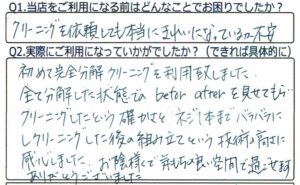 Q1.当店をご利用になる前はどんなことでお困りでしたか?
クリーニングを依頼しても本当にきれいになっているか不安
Q2.実際にご利用になっていかがでしたか?(できれば具体的に)
初めて完全分解クリーニングを利用致しました。
全て分解した状態で befor after を見せてもらい
クリーニングしたという確かさと ネジ1本までバラバラに
してクリーニングした後の組み立てという 技術の高さに
感心しました。お陰様で 気持ちの良い空間で過ごせます
ありがとうございました